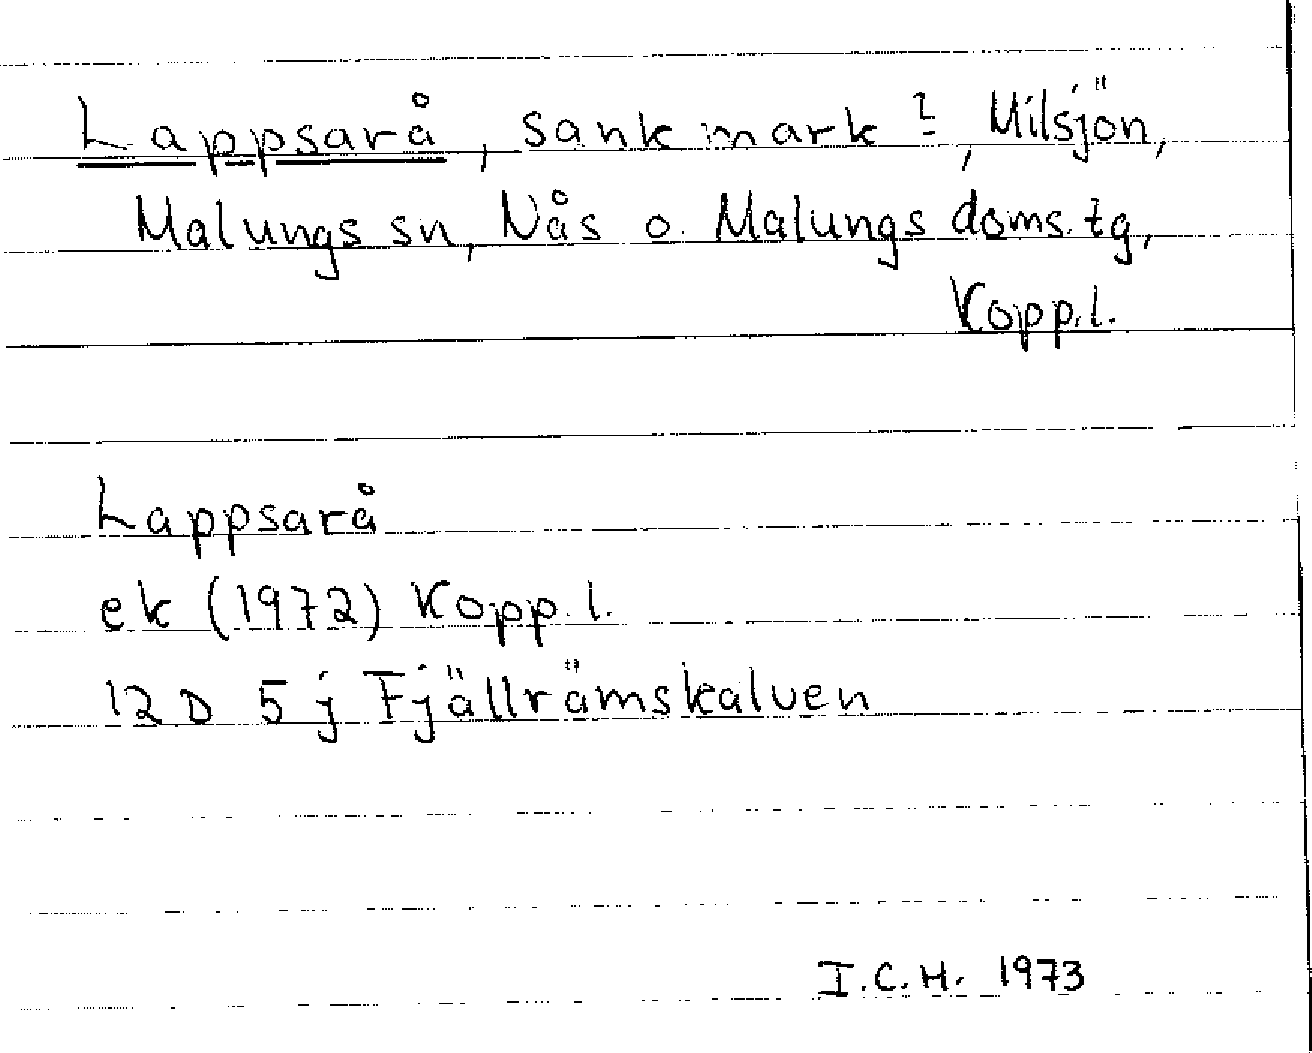 Lappsarå, sankmark?, Milsjön,
Malungs sn, Nås o. Malungs doms.tg,
Kopp.l.
Lappsarå
ek (1972) Kopp.l.
12D 5j Fjällrämskalven
I.C.H. 1973